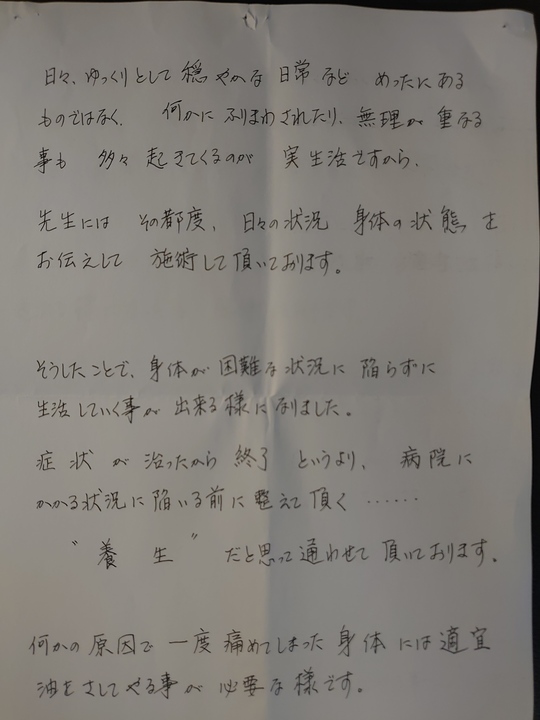 日々、ゆっくりとして穏やかな日常など めったにある
ものではなく、 何かにふりまわされたり、無理が重なる
事も 多々起きてくるのが 実生活ですから、
先生には その都度、日々の状況 身体の状態を
お伝えして 施術して頂いております。
そうしたことで、身体が困難な状況に陥らずに
生活していく事が出来る様になりました。
症状が治ったから終了というより、病院に
かかる状況に陥いる前に整えて頂く ……
〝養生〟だと思って通わせて頂いております。
何かの原因で一度痛めてしまった身体には適宜
油をさしてやる事が必要な様です。